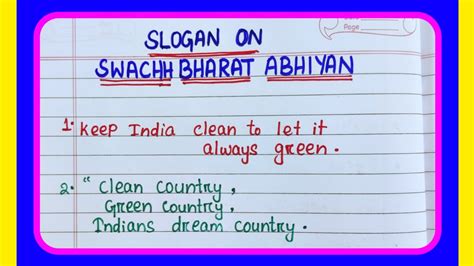 Page
SLOGAN ON
SWACHH BHARAT ABHIYAN
1. Keep India clean to let it
always green.
2. “ Clean Country,
Green Country,
Indians dream country.